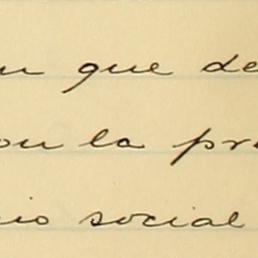 que de
la pr
social